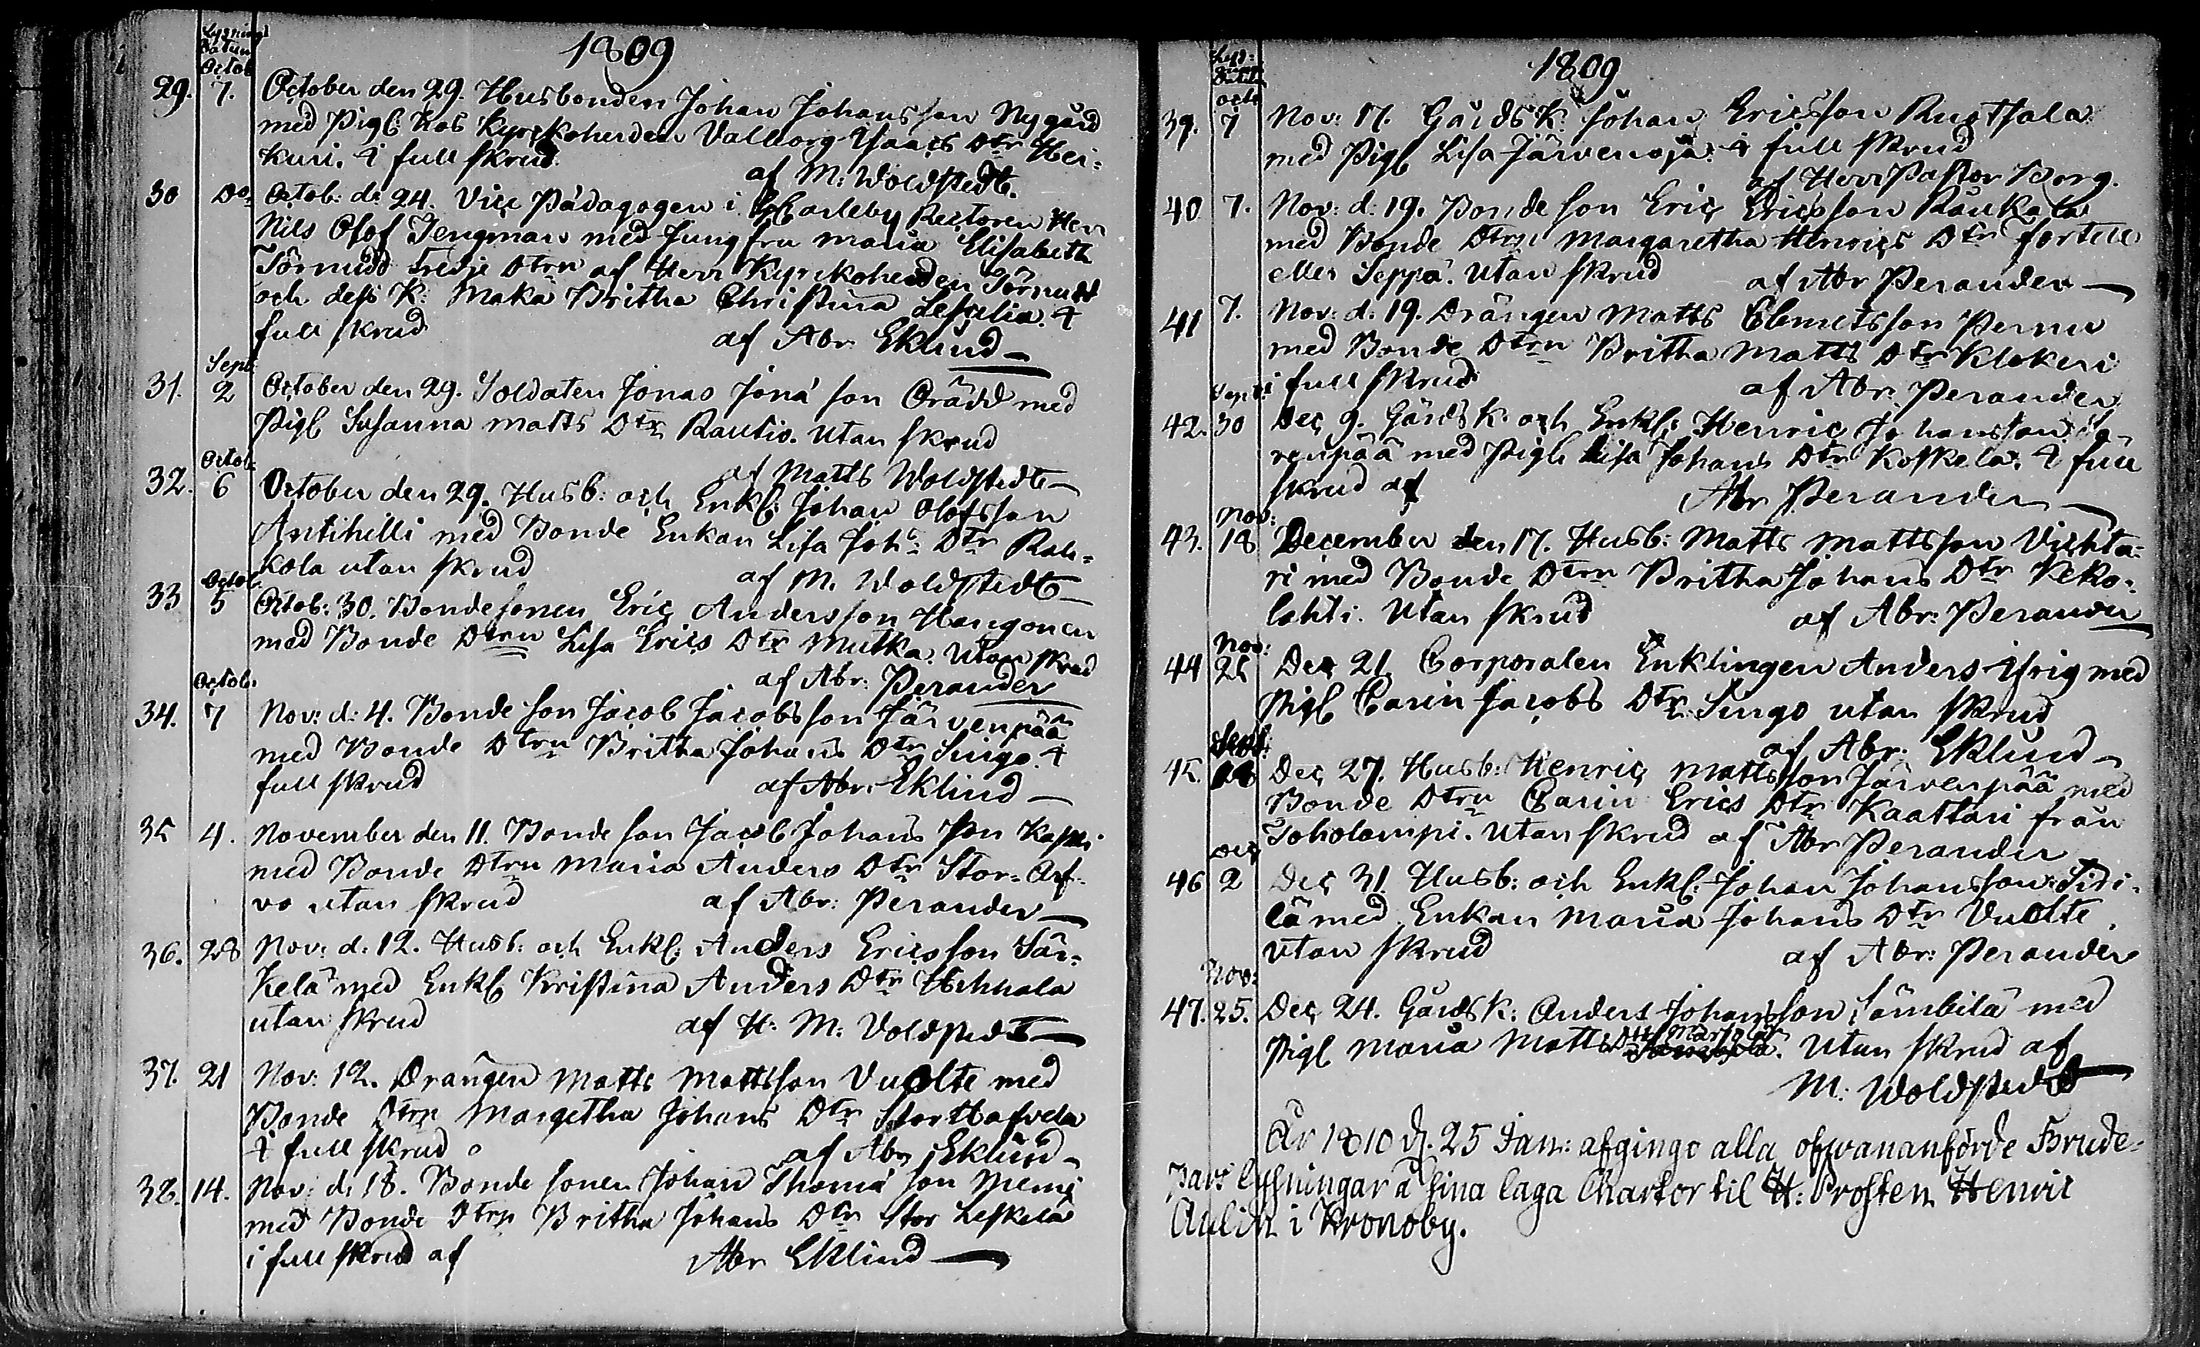 Lysnings
Datum
Octob
1809
29. 7. October den 29. Husbonden Johan Johansson Nygård
med Pig. hos Kyrckoherden Valborg Isaacs Dtr Hei-
kuri. I full skrud. af M: Woldstedt.
30 Do Octob. d. 24. Vice Pädagogen i GCarleby Rectoren Herr
Nils Olof Tengman med Jungfru Maria Elisabeth
Törnudd tredje Dtrn af Herr Kyrckoherden Törnudd
och dess K: Maka Britha Christina Lesselia. I
full skrud af Abr Eklund
Sept
31. 2 October den 29. Soldaten Jonas Jona son Orädd med
Pig. Susanna Matts Dtr Rautio. Utan skrud
af Matts Woldstedt
Octob.
32. 6 October den 29. Husb: och Enkl: Johan Olofsson
Anttihilli med Bonde Enkan Lisa Joh: Dtr Rah-
kola utan skrud af M. Woldstedt
Octob
33 5 Octob: 30. Bondesonen Eric Andersson Hangonen
med Bonde Dtrn Lisa Erics Dtr Mutka. Utan skrud
af Abr: Perander
Octob.
34. 7 Nov: d: 4. Bonde son Jacob Jacobsson Järvenpää
med Bonde Dtrn Britha Johans Dtr Lingo. I
full skrud af Abr: Eklund
35 4. November den 11. Bonde son Jacob Johans son
med Bonde Dtrn Maria Anders Dtr Stor-Arf-
vo utan skrud af Abr: Perander
36. 28 Nov: d: 12. Husb: och Enkl: Anders Ericsson Sär-
kelä med Enkl. Kristina Anders Dtr Hehkala
utan skrud af H: M: Voldstedt
37. 21 Nov: 12. Drängen Matts Mattsson Vuolte med
Bonde Dtrn Margetha Johans Dtr Stor Hafvela
I full skrud af Abr Eklund
38. 14. Nov: d: 18. Bonde sonen Johan Thoma son Niemi
med Bonde Dtrn Britha Johans Dtr Stor Leskelä
i full skrud af Abr Eklund
Lys-
nings
Datum
octo
1809
39. 7 Nov: 17. Gårds K: Johan Ericsson Ruotsala
med Pig. Lisa Järvenoja. I full skrud
af Herr Pastor Borg.
40 7. Nov: d: 19. Bonde son Eric Ericsson Räukala
med Bonde Dtrn Margaretha Henrics Dtr Fortell
eller Seppä. Utan skrud af Abr Perander
41 7. Nov: d: 19. Drängen Matts Clemetsson Pernu
med Bonde Dtrn Britha Matts Dtr Klokeri
i full skrud af Abr: Perander
Sept
42. 30 Dec 9. Gårds K. och Enkl: Henric Johansson Jä-
renpää med Pig. Lisa Johans Dtr Koskela. I full
skrud af Abr Perander
Nov:
43. 18 December den 17. Husb: Matts Mattsson Vichta-
ri med Bonde Dtrn Britha Johans Dtr Keko-
lahti. Utan skrud af Abr: Perander
Nov:
44 25 Dec 21 Corporalen Enklingen Anders Ifrig med
Pig. Carin Jacobs Dtr Lingo utan skrud
af Abr: Eklund
45. 28 Dec 27. Husb: Henric Mattsson Järvenpää med
Bonde Dtrn Carin Erics Dtr Kaattari från
Toholampi. Utan skrud af Abr Perander
Dec
46 2 Dec 31 Husb: och Enkl: Johan Johansson Sidi-
lä med Enkan Maria Johans Dtr Vuolte
utan skrud af Abr: Perander
Nov:
47. 25. Dec 24. Gårds K: Anders Johansson Sämbilä med
Pig. Maria Matts Dtr. Utan skrud af
M. Woldstedt
År 1810 d. 25 Jan: afgingo alla ofvananförde Brude-
pars lysningar å sina laga Chartor til H: Prosten Henric
Aulin i Kronoby.